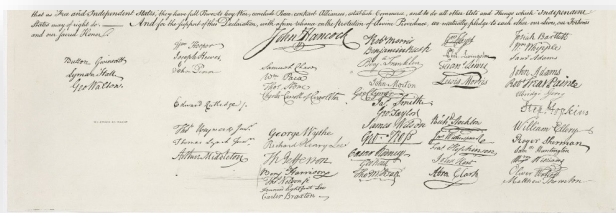 that as Free and Independent States, they have full Power to levy War, conclude Peace, contract Alliances, establish Commerce, and to do all other Acts and Things which Independent
States may of right do. — And for the support of this Declaration, with a firm reliance on the protection of divine Providence, we mutually pledge to each other our Lives, our Fortunes
and our sacred Honor.
Button Gwinnett
Lyman Hall
Geo Walton.
Wm Hooper
Joseph Hewes
John Penn
Edward Rutledge
Thos Heyward Junr.
Thomas Lynch Junr.
Arthur Middleton
John Hancock
Samuel Chase
Wm Paca
Thos Stone
Charles Carroll of Carrollton
George Wythe
Richard Henry Lee
Th Jefferson
Benj Harrison
Thos Nelson jr.
Francis Lightfoot Lee
Carter Braxton
Robt Morris
Benjamin Rush
Benj Franklin
John Morton
Geo Clymer
Jas Smith
Geo Taylor
James Wilson
Geo Ross
Caesar Rodney
Geo Read
Tho M:Kean
Wm Floyd
Phil Livingston
Frans Lewis
Lewis Morris
Richd Stockton
Jno Witherspoon
Fras Hopkinson
John Hart
Abra Clark
Josiah Bartlett
Wm Whipple
Saml Adams
John Adams
Robt Treat Paine
Elbridge Gerry
Step Hopkins
William Ellery
Roger Sherman
Saml Huntington
Wm Williams
Oliver Wolcott
Matthew Thornton